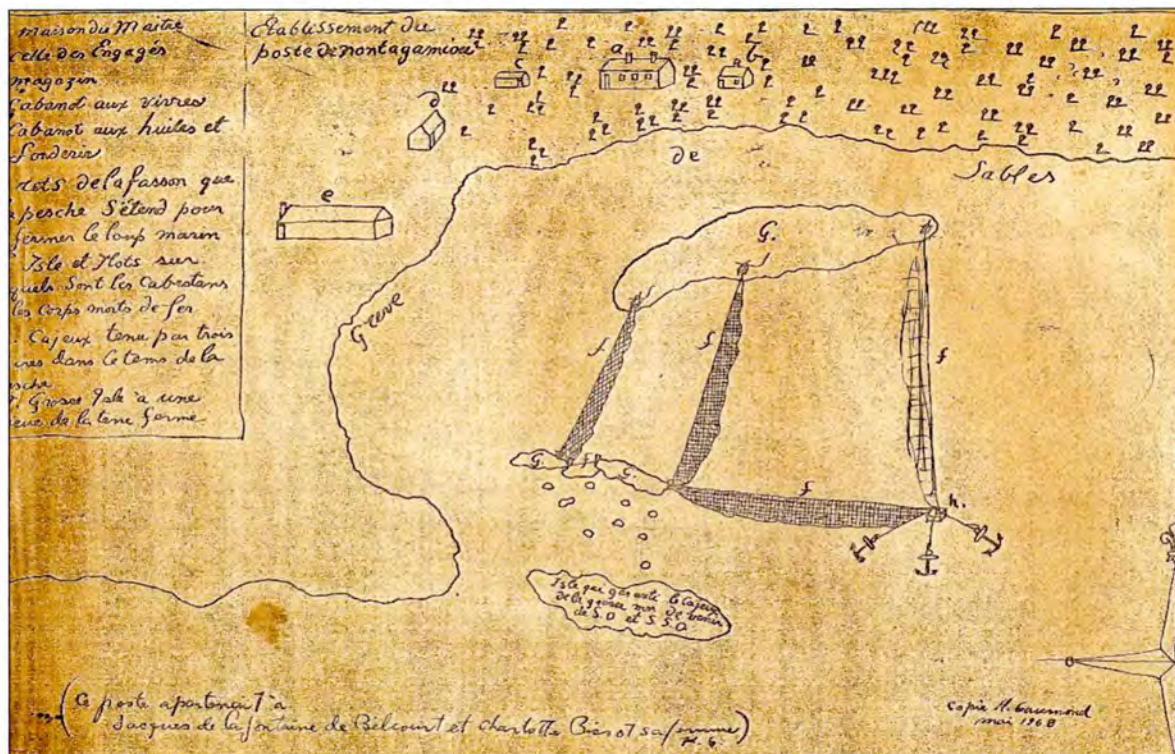 maison du Maitre
celle des Engagés
magazin
Cabanot aux vivres
Cabanot aux huiles et
fonderie
rets de la fasson que
pesche S'étend pour
fermer le loup marin
Isle et Ilots sur
quels Sont les Cabestans
les Corps morts de fer
Cajeux tenu par trois
dans le tems de la
Grosse Isle à une
de la terre ferme
Etablissement du
poste de nontagamiou
a
b
c
d
e
Greve
de
Sables
G.
f
f
f
G.
G.
f
h.
Isle qui garentit le Cajeux
de la grosse mer de venir
de S.O et S.S.O.
(Ce poste apartenait à
Jacques de Lafontaine de Belcourt et Charlotte Bissot sa femme)
H. G.
copie H. Gaumond
mai 1968